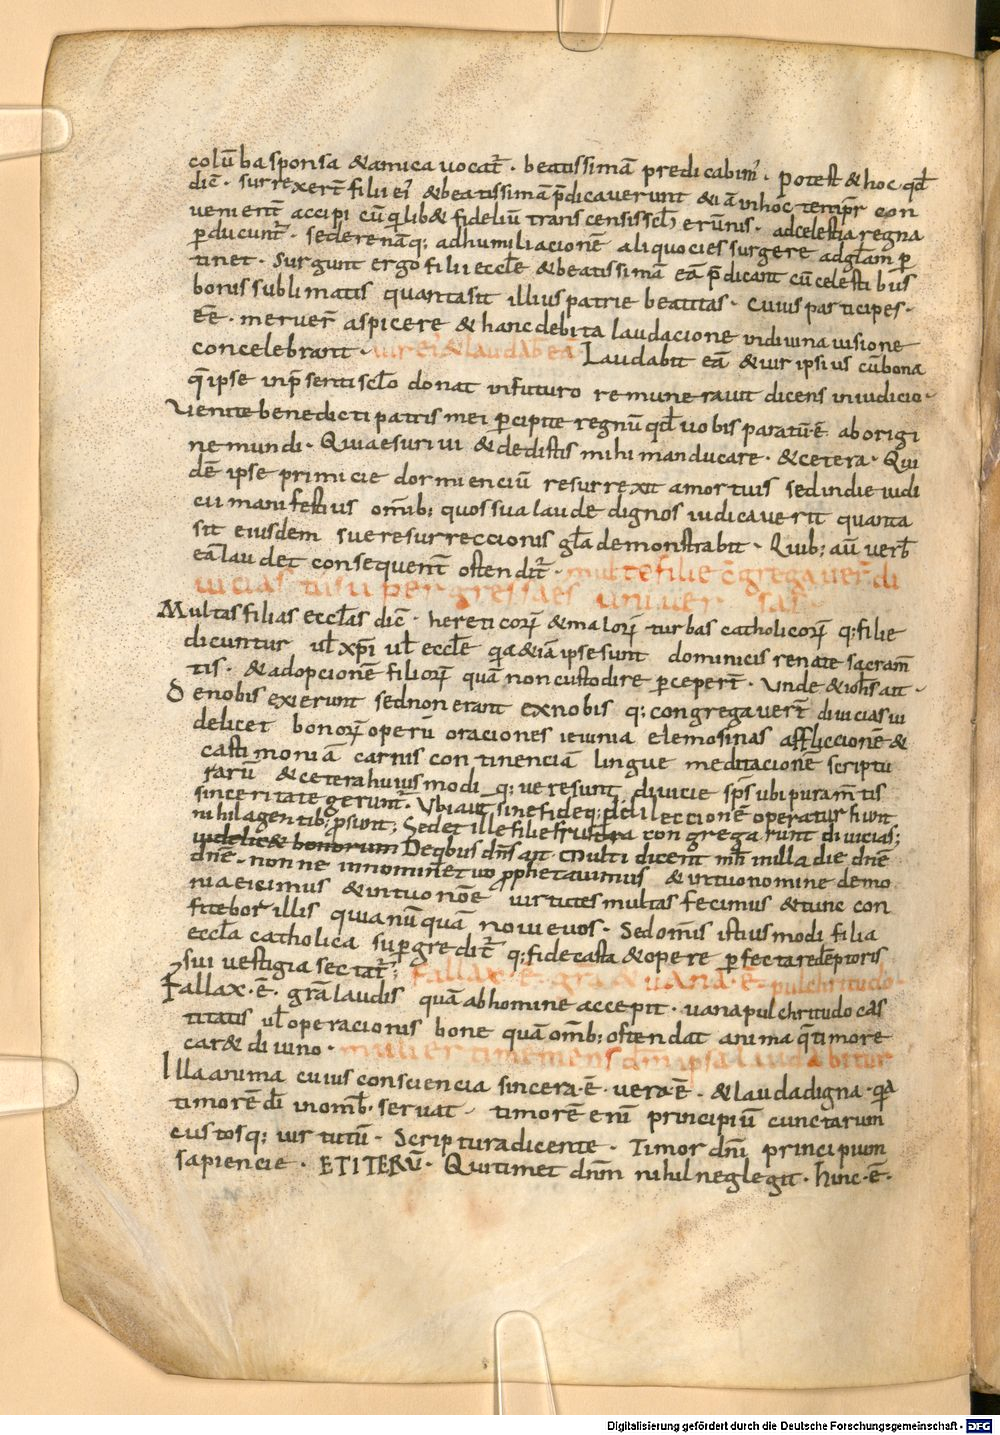 colūba sponsa &amica uocat̄ · beatissimā predicabim̄ · potest & hoc qđ
dic̄ · surrexer̄ filii ei' &beatissimā p̄dicauerunt &iā inhoc temp̄r con
uenient̄ accipi cū q̄lib& fideliū transcensis scl̄i erūnis · adcelestia regna
ꝑducunt̄ · sedere nāq; adhumiliacionē aliquocies surgere adgl̄am ꝑ
tinet · Surgunt ergo filii eccl̄e &beatissimā eā p̄dicant cū celestibus
bonis sublimatis quanta sit illius patrie beatitas · cuius participes ·
ēē · meruer̄ aspicere & hanc debita laudacione indiuina uisione
concelebrant · uir ei' & laudab̄ eā Laudabit eā &uir ipsius cū bona
q̄ ipse inp̄senti scl̄o donat infuturo remunerauit dicens iniudicio ·
Uenite benedicti patris mei ꝑcipite regnū qđ uobis paratū ē ab origi
ne mundi · Quia esuriui & dedistis mihi manducare · &cetera · Qui
dē ipse primicie dormienciū resurrexit amortuis sed indie iudi
cii manifestius omīb; quos sua laude dignos iudicauerit quanta
sit eiusdem sue resurreccionis gl̄a demonstrabit · Quib; aū uerb̄
eā laudet consequent̄ ostendit̄ · multe filie c̄gregauer̄ di
uicias tu supergressa es uniuersas
Multas filias eccl̄as dic̄ · hereticoꝝ &maloꝝ turbas catholicoꝝ q; filie
dicuntur ul̄ xp̄i ul̄ eccl̄e q̄a &iā ipse sunt dominicis renate sacram̄
tis · &adopcionē filioꝝ quā non custodire ꝑceper̄ · Unde &ioh̄s ait ·
De nobis exierunt sed non erant exnobis q; congregauer̄ diuicias ui
delicet bonoꝝ operū oraciones ieiunia elemosinas affliccionē &
castimoniā carnis continenciā lingue meditacionē scriptu
rarū &cetera huiusmodi q; uere sunt diuicie sp̄s ubi puram̄tis
sinceritate gerunt̄ · Ubi aut̄ sine fide q; ꝑ dilleccionē operatur fiunt
nihil agentib; ꝓsunt; Sed et ille filie frustra congregarunt diuicias;
uidelic& bonorum De qbus dn̄s ait · Multi dicent m̄h inilla die dn̄e
dn̄e · nonne innomine tuo prophetauimus &intuo nomine demo
nia eicimus &intuo noīe uirtutes multas fecimus &tunc con
fitebor illis quia nūquā noui euos · Sed omīs istiusmodi filia
eccl̄a catholica suꝑgredit̄ q; fide casta &opere ꝑfecta redēptoris
sui uestigia sectat̄; Fallax · ē · gr̄a & uana · ē · pulchritudo ·
Fallax · ē · gr̄a laudis quā ab homine accepit · uana pulchritudo cas
titatis ul̄ operacionis bone quā omīb; ostendat anima q̄ timore
car& diuino · mulier timemens dn̄m ipsa laudabitur
Illa anima cuius consciencia sincera · ē · uera · ē · &lauda digna · q̄a
timorē dī inomīb · seruat · timorē enī principiū cunctarum
custosq; uirtutū · Scriptura dicente · Timor dn̄i principium
sapiencie · ET ITERŪ · Qui timet dn̄m nihil neglegit · hinc · ē ·
Digitalisierung gefördert durch die Deutsche Forschungsgemeinschaft - DFG